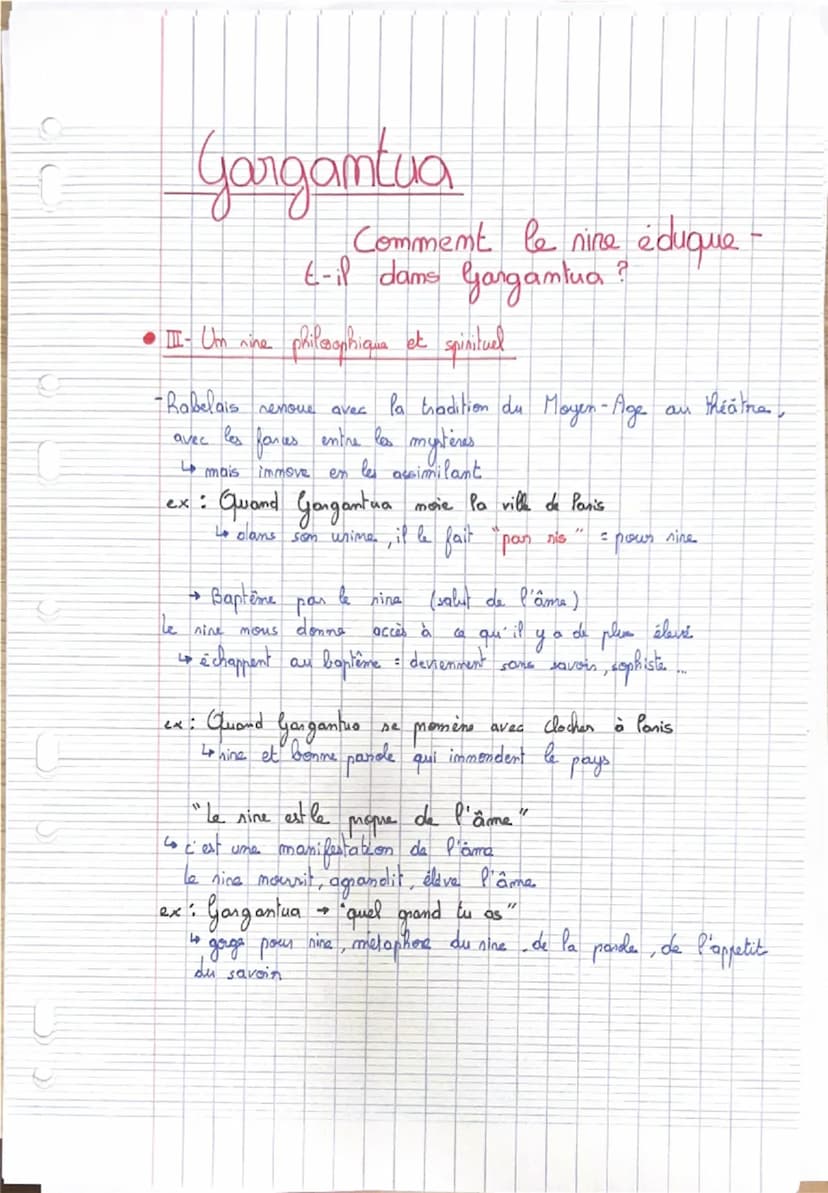 Gargantua
Comment le rire éduque-
t-il dans Gargantua ?
• III- Un rire philosophique et spirituel
- Rabelais renoue avec la tradition du Moyen-Age au théâtre,
avec les farces entre les mystères
↳ mais innove en les assimilant
ex : Quand Gargantua noie la ville de Paris
↳ dans son urine, il le fait "par ris" = pour rire
→ Baptême par le rire (salut de l'âme)
Le rire nous donne accès à ce qu'il y a de plus élevé
↳ échappent au baptême = deviennent sans savoir, sophiste ...
ex : Quand Gargantua se promène avec clocher à Paris
↳ rire et bonne parole qui innondent le pays
"Le rire est le propre de l'âme"
↳ c'est une manifestation de l'âme
Le rire nourrit, agrandit, élève l'âme
ex : Gargantua → "quel grand tu as"
↳ gorge pour rire, métaphore du rire, de la parole, de l'appetit
du savoir